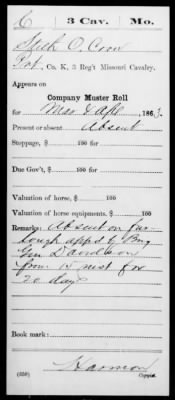 C | 3 Cav. | Mo.
O. Crow
Pvt, Co. K, 3 Reg't Missouri Cavalry.
Appears on
Company Muster Roll
for Mar & Apl, 1863.
Present or absent Absent
Stoppage, $ 100 for
Due Gov't, $ 100
Valuation of horse, $ 100
Valuation of horse equipments, $ 100
Remarks: Absent on fur-
lough appd by Brig
Gen Davidson
from 15 inst for
20 days
Book mark:
Harmon
(358) Copyist.